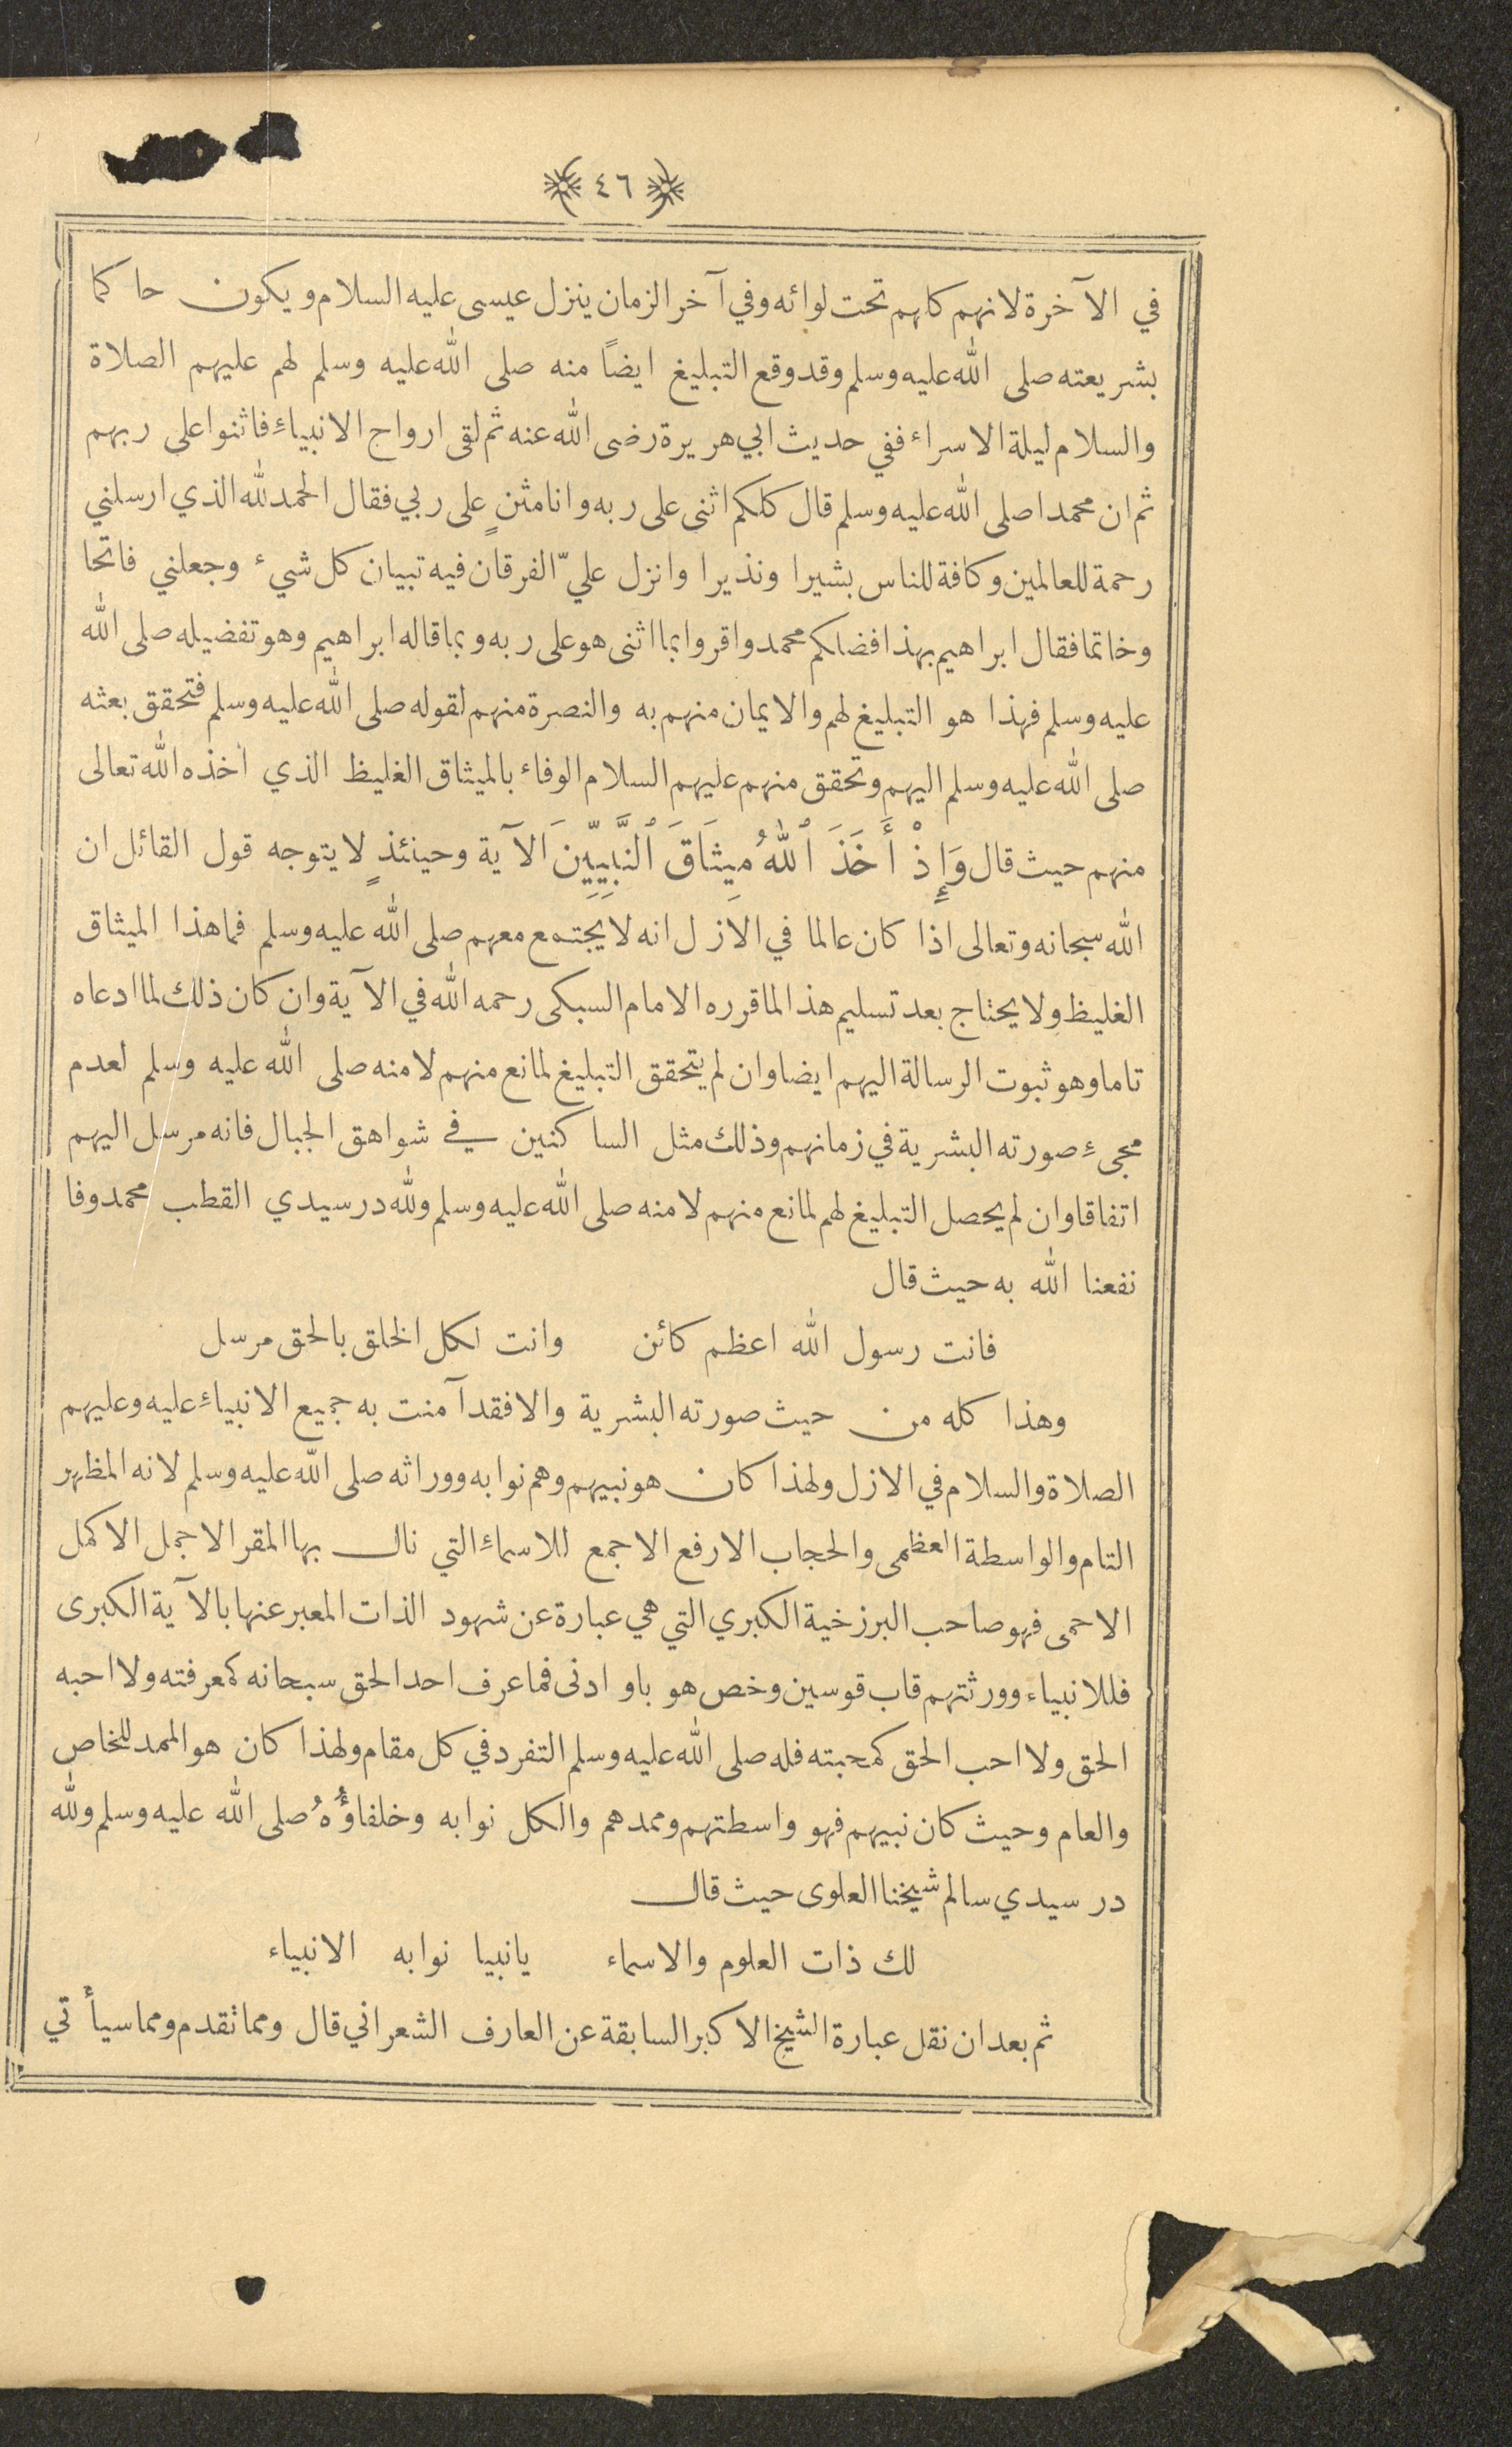 ٤٦
في الآخرة لانهم كلهم تحت لوائه وفي آخر الزمان ينزل عيسى عليه السلام ويكون حاكما
بشريعته صلى الله عليه وسلم وقد وقع التبليغ ايضاً منه صلى الله عليه وسلم لهم عليهم الصلاة
والسلام ليلة الاسراء ففي حديث ابي هريرة رضى الله عنه ثم لقى ارواح الانبياءِ فاثنوا على ربهم
ثم ان محمدا صلى الله عليه وسلم قال كلكم اثنى على ربه وانا مثنٍ على ربي فقال الحمد لله الذي ارسلني
رحمة للعالمين وكافة للناس بشيرا ونذيرا وانزل عليّ الفرقان فيه تبيان كل شيء وجعلني فاتحا
وخاتما فقال ابراهيم بهذا فضلكم محمد واقروا بما اثنى هو على ربه وبما قاله ابراهيم وهو تفضيله صلى الله
عليه وسلم فهذا هو التبليغ لهم والايمان منهم به والنصرة منهم لقوله صلى الله عليه وسلم فتحقق بعثه
صلى الله عليه وسلم اليهم وتحقق منهم عليهم السلام الوفاء بالميثاق الغليظ الذي اخذه الله تعالى
منهم حيث قال وَإِذْ أَخَذَ ٱللهُ مِيثَاقَ ٱلنَّبِيِّينَ الآية وحينئذٍ لا يتوجه قول القائل ان
الله سبحانه وتعالى اذا كان عالما في الازل انه لا يجتمع معهم صلى الله عليه وسلم فما هذا الميثاق
الغليظ ولا يحتاج بعد تسليم هذا لما قرره الامام السبكى رحمه الله في الآية وان كان ذلك لما ادعاه
تاما وهو ثبوت الرسالة اليهم ايضا وان لم يتحقق التبليغ لمانع منهم لا منه صلى الله عليه وسلم لعدم
مجيءِ صورته البشرية في زمانهم وذلك مثل الساكنين في شواهق الجبال فانه مرسل اليهم
اتفاقا وان لم يحصل التبليغ لهم لمانع منهم لا منه صلى الله عليه وسلم ولله در سيدي القطب محمد وفا
نفعنا الله به حيث قال
فانت رسول الله اعظم كائن وانت لكل الخلق بالحق مرسل
وهذا كله من حيث صورته البشرية والا فقد آمنت به جميع الانبياءِ عليه وعليهم
الصلاة والسلام في الازل ولهذا كان هو نبيهم وهم نوابه ووراثه صلى الله عليه وسلم لانه المظهر
التام والواسطة العظمى والحجاب الارفع الاجمع للاسماءِ التي نال بها المقر الاجمل الاكمل
الاحمى فهو صاحب البرزخية الكبري التي هي عبارة عن شهود الذات المعبر عنها بالآية الكبرى
فللانبياء وورثتهم قاب قوسين وخص هو باو ادنى فما عرف احد الحق سبحانه كمعرفته ولا احبه
الحق ولا احب الحق كمحبته فله صلى الله عليه وسلم التفرد في كل مقام ولهذا كان هو الممد للخاص
والعام وحيث كان نبيهم فهو واسطتهم وممدهم والكل نوابه وخلفاؤُهُ صلى الله عليه وسلم ولله
در سيدي سالم شيخنا العلوى حيث قال
لك ذات العلوم والاسماء يا نبيا نوابه الانبياء
ثم بعد ان نقل عبارة الشيخ الاكبر السابقة عن العارف الشعراني قال ومما تقدم ومما سيأتي